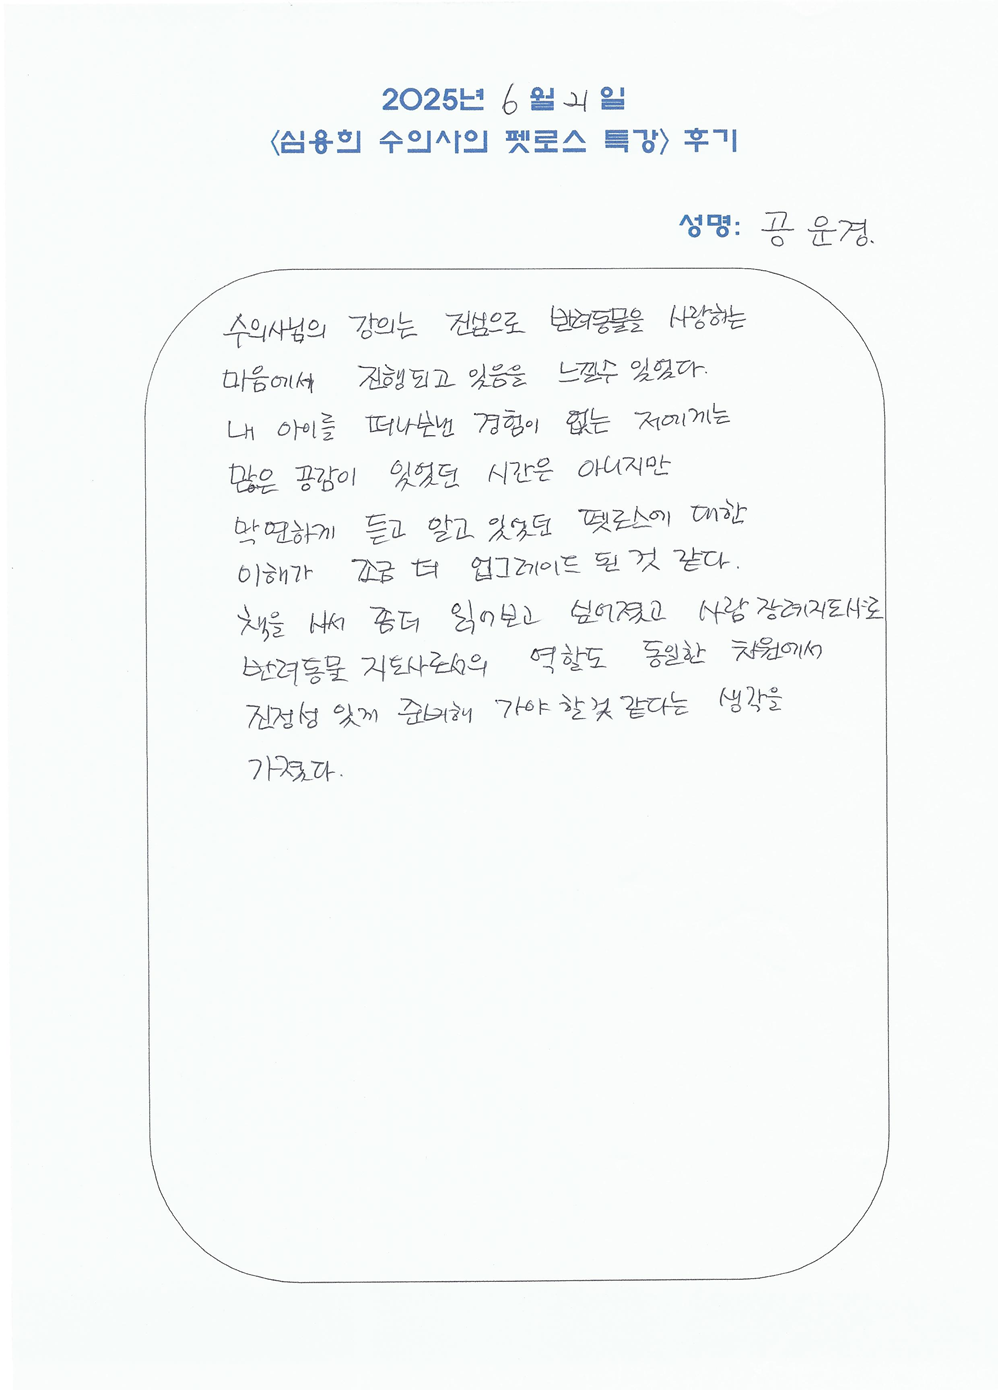 2025년 6월 21일
<심용희 수의사의 펫로스 특강> 후기
성명: 공운경.
수의사님의 강의는 진심으로 반려동물을 사랑하는
마음에서 진행되고 있음을 느낄수 있었다.
내 아이를 떠나보낸 경험이 없는 저에게는
많은 공감이 있었던 시간은 아니지만
막연하게 듣고 알고 있었던 펫로스에 대한
이해가 조금 더 업그레이드 된 것 같다.
책을 사서 좀더 읽어보고 싶어졌고 사람 장례지도사로
반려동물 지도사로서의 역할도 동일한 차원에서
진정성 있게 준비해 가야 할것 같다는 생각을
가졌다.